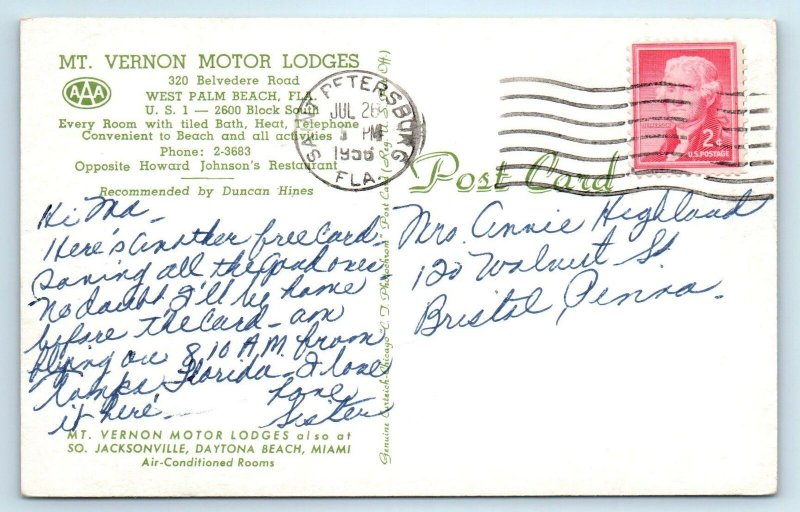 MT. VERNON MOTOR LODGES
320 Belvedere Road
WEST PALM BEACH, FLA.
U. S. 1 — 2600 Block South
Every Room with tiled Bath, Heat, Telephone
Convenient to Beach and all activities
Phone: 2-3683
Opposite Howard Johnson's Restaurant
Recommended by Duncan Hines
AAA
SAINT PETERSBURG
JUL 26
PM
1956
FLA.
2¢
U.S. POSTAGE
Post Card
Hi Ma —
Here's another free Card —
Saving all the good ones
No doubt I'll be home
before the Card — am
flying on 8:10 A.M. from
Tampa Florida — I love
it here —
Love
Sister
Mrs. Annie Highland
120 Walnut St
Bristol, Penna.
Genuine Curteich-Chicago "C. T. Photochrom" Post Card (Reg. U. S. Pat. Off.)
MT. VERNON MOTOR LODGES also at
SO. JACKSONVILLE, DAYTONA BEACH, MIAMI
Air-Conditioned Rooms